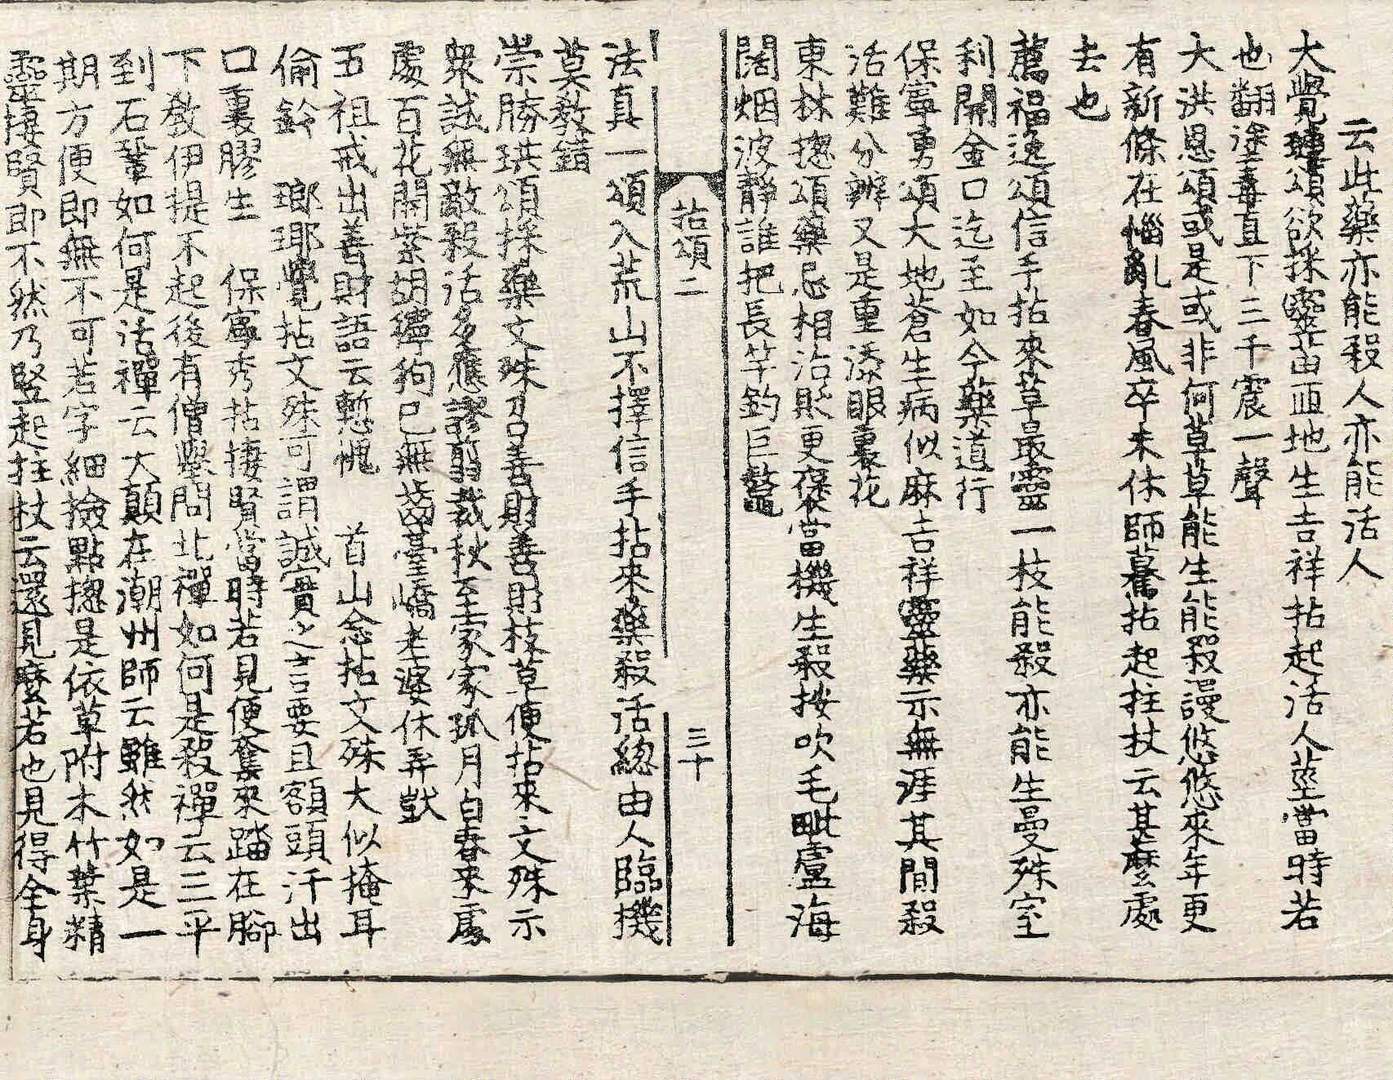 云此藥亦能殺人亦能活人
大覺璉頌欲採靈苗帀地生吉祥拈起活人莖當時若
也翻塗毒直下三千震一聲
大洪恩頌或是或非何草草能生能殺謾悠悠來年更
有新條在惱亂春風卒未休師驀拈起拄杖云甚麽處
去也
薦福逸頌信手拈來草最靈一枝能殺亦能生曼殊室
利開金口迄至如今藥道行
保寧勇頌大地蒼生病似麻吉祥靈藥示無涯其間殺
活難分辨又是重添眼裏花
東林揔頌藥忌相治貶更襃當機生殺按吹毛毗盧海
闊烟波靜誰把長竿釣巨鼇
拈頌二
三十
法真一頌入荒山不擇信手拈來藥殺活総由人臨機
莫敎錯
崇勝珙頌採藥文殊召善財善財枝草便拈來文殊示
衆誠無敵殺活多應謬剪裁秋至家家孤月白春來處
處百花開紫胡獰狗已無齒臺嶠老婆休弄獃
五祖戒出善財語云慙愧 首山念拈文殊大似掩耳
偷鈴 瑯琊覺拈文殊可謂誠實之言要且額頭汗出
口裏膠生 保寧秀拈捿賢當時若見便奪來踏在腳
下敎伊提不起後有僧擧問北禪如何是殺禪云三平
到石鞏如何是活禪云大顛在潮州師云雖然如是一
期方便即無不可若字細撿點揔是依草附木竹葉精
靈捿賢即不然乃竪起拄杖云還見麽若也見得全身